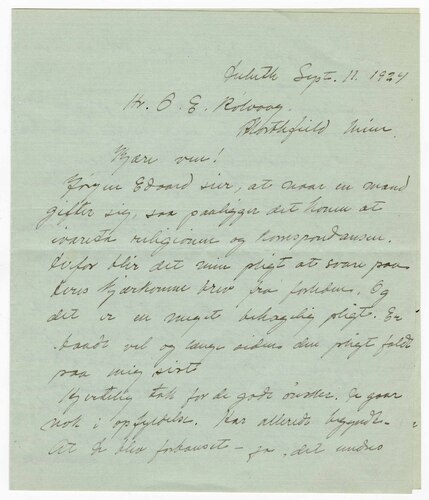 Duluth Sept. 11. 1924
Hr. O. E. Rölvaag,
Northfield Minn.
Kjære ven!
Jørgen Edvard sier, at naar en mand
gifter sig, saa paaligger det honom at
ivareta religionen og korrespondansen.
Derfor blir det min pligt at svare paa
Deres kjærkomne brev fra forleden. Og
det er en meget behagelig pligt. Er
baade vel og længe siden den pligt faldt
paa mig sist
Hjertelig tak for de gode ønsker. De gaar
nok i opfyldelse. Har allerede begyndt.
At De blev forbauset – ja, det undres